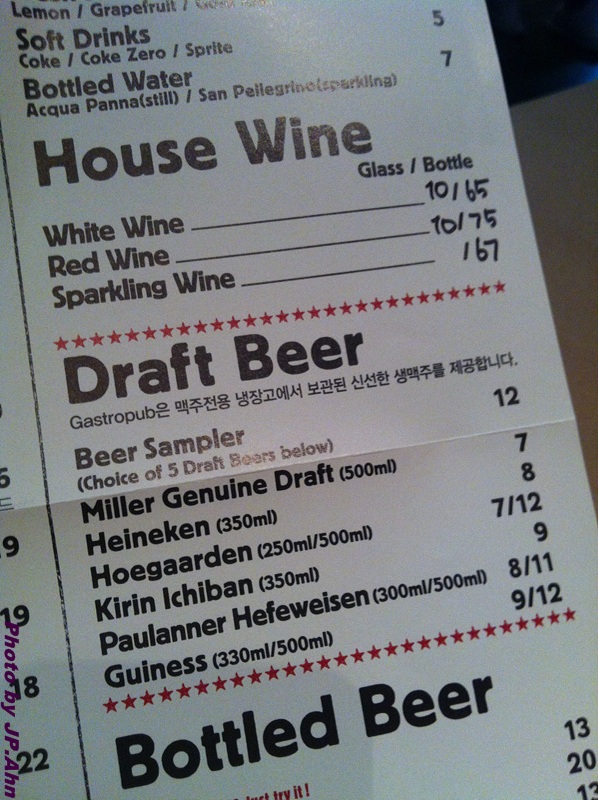 Lemon / Grapefruit /
5
Soft Drinks
Coke / Coke Zero / Sprite
7
Bottled Water
Acqua Panna(still) / San Pellegrino(sparkling)
House Wine
Glass / Bottle
White Wine 10/65
Red Wine 10/75
Sparkling Wine /67
Draft Beer
Gastropub은 맥주전용 냉장고에서 보관된 신선한 생맥주를 제공합니다.
Beer Sampler 12
(Choice of 5 Draft Beers below)
Miller Genuine Draft (500ml) 7
Heineken (350ml) 8
Hoegaarden (250ml/500ml) 7/12
Kirin Ichiban (350ml) 9
Paulanner Hefeweisen (300ml/500ml) 8/11
Guiness (330ml/500ml) 9/12
Bottled Beer
just try it!
13
20
13
9
19
18
22
Photo by JP.Ahn